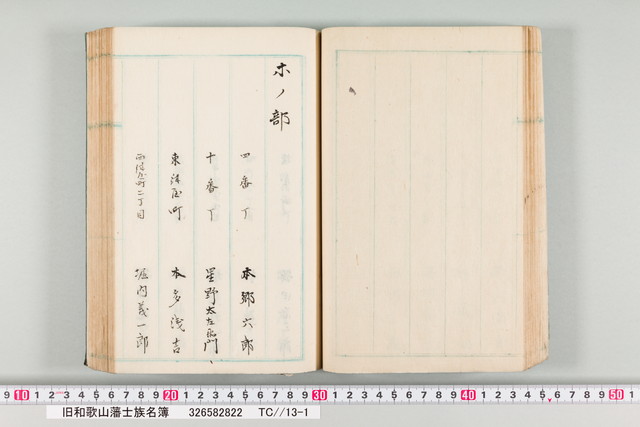 ホノ部
四番丁 本郷六郎
十番丁 星野太左衛門
東鍛冶町 本多浅吉
西鍛冶町二丁目 堀内義一郎
旧和歌山藩士族名簿 326582822 TC//13-1
9 10 1 2 3 4 5 6 7 8 9 20 1 2 3 4 5 6 7 8 9 30 1 2 3 4 5 6 7 8 9 40 1 2 3 4 5 6 7 8 9 50 1